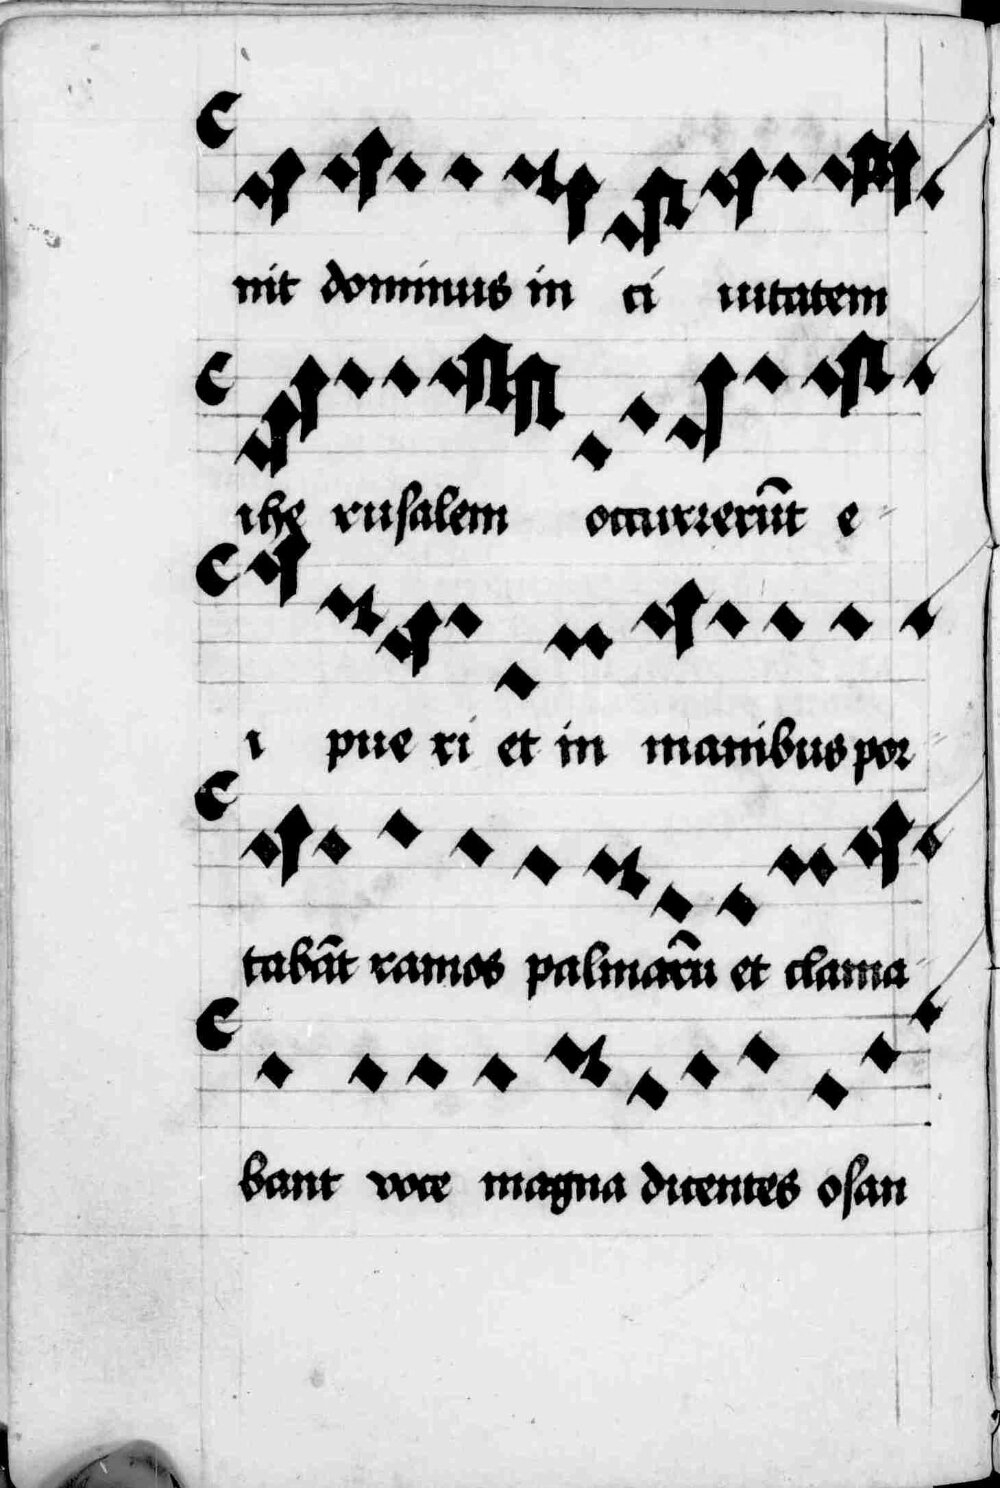 nit dominus in ci uitatem
ihe rusalem occurrerūt e-
i pue ri et in manibus por-
tabāt ramos palmarū et clama-
bant voce magna dicentes osan